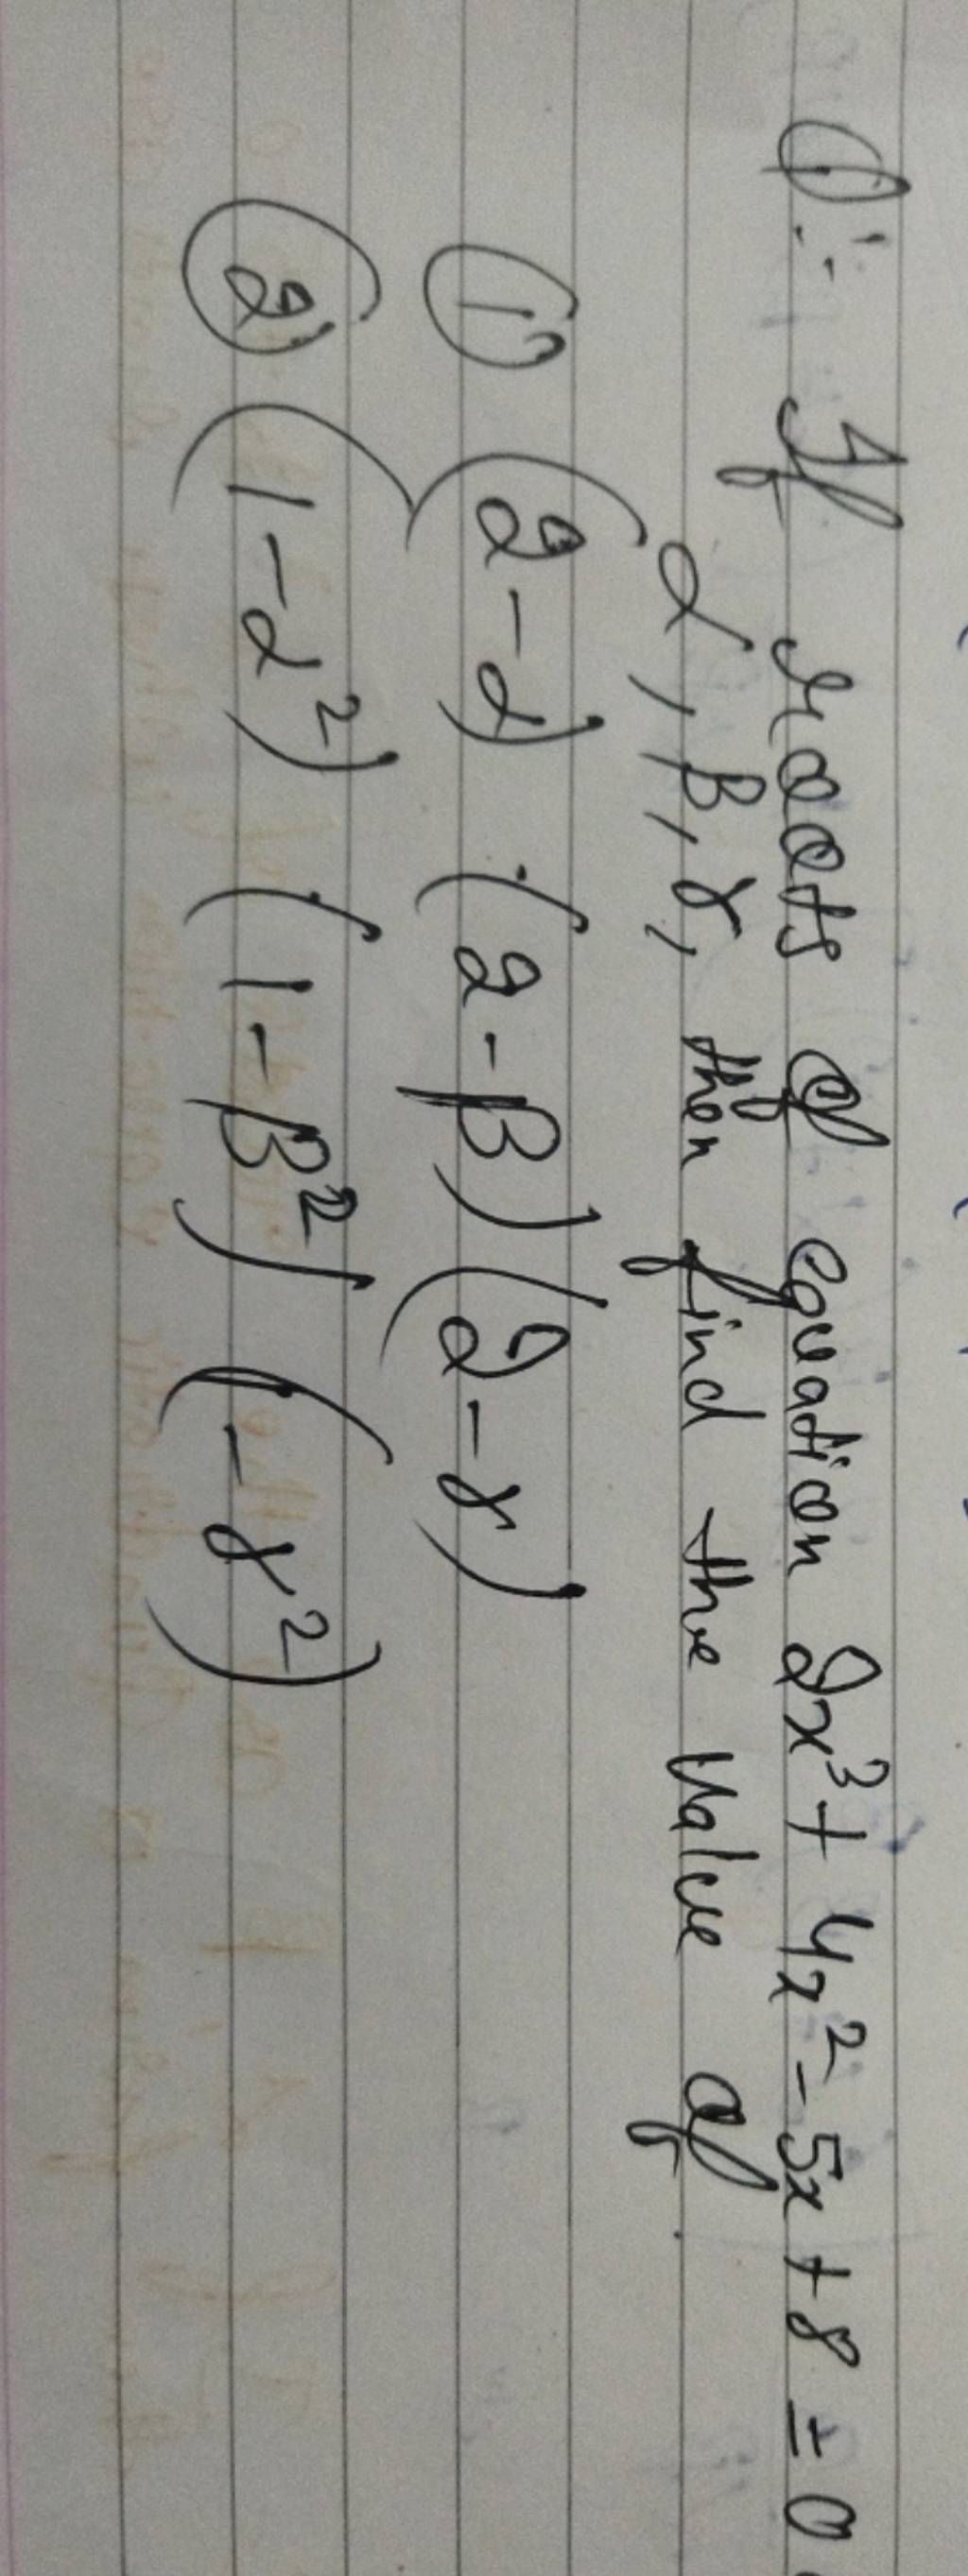 Q:- If roots of equation 2x³ + 4x² - 5x + 8 = 0
α, β, γ, then find the value of
① (2-α) (2-β) (2-γ)
② (1-α²) (1-β²) (1-γ²)